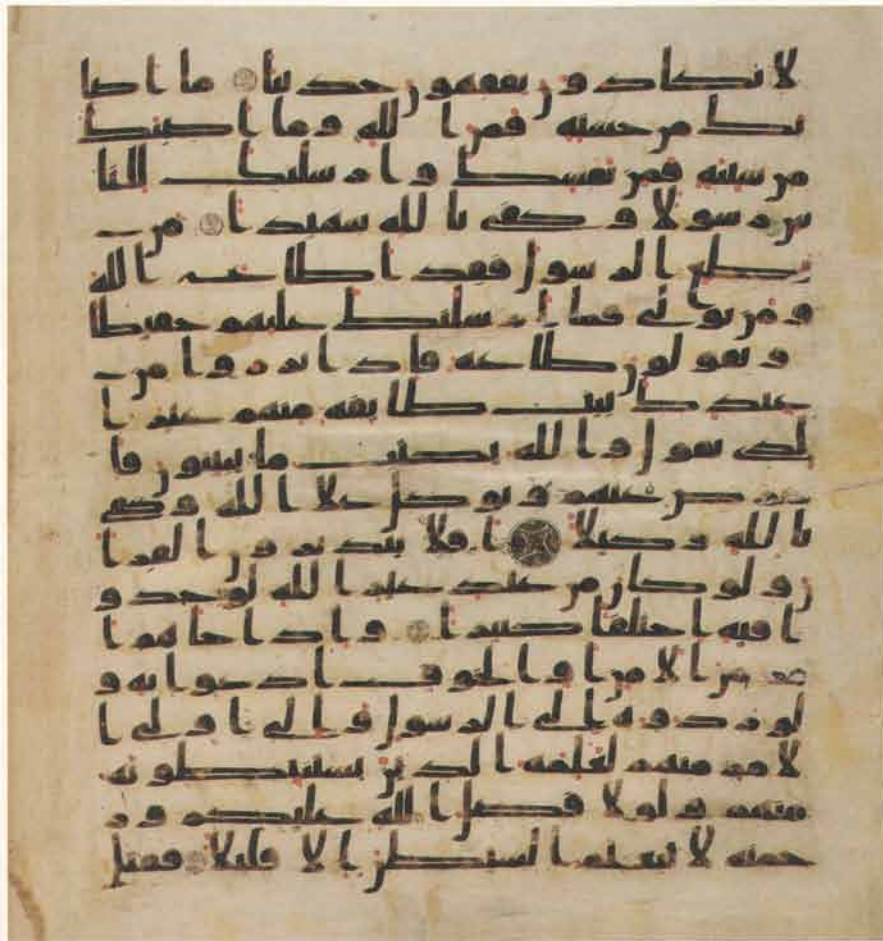 لا يكادون يفقهون حديثا ما اصا
بك من حسنة فمن الله وما اصبك
من سيئة فمن نفسك وارسلنك للنا
س رسولا وكفى بالله شهيدا من
يطع الرسول فقد اطاع الله
ومن تولى فما ارسلنك عليهم حفيظا
ويقولون طاعة فاذا برزوا من
عندك بيت طايفة منهم غير ا
لذي تقول والله يكتب ما يبيتون فا
عرض عنهم وتوكل على الله وكفى
بالله وكيلا افلا يتدبرون القرا
ن ولو كان من عند غير الله لوجدو
ا فيه اختلفا كثيرا واذا جاهم ا
مر من الامن او الخوف اذاعوا به و
لو ردوه الى الرسول والى اولي ا
لامر منهم لعلمه الذين يستنبطونه
منهم ولولا فضل الله عليكم ور
حمته لاتبعتم الشيطن الا قليلا فقتل